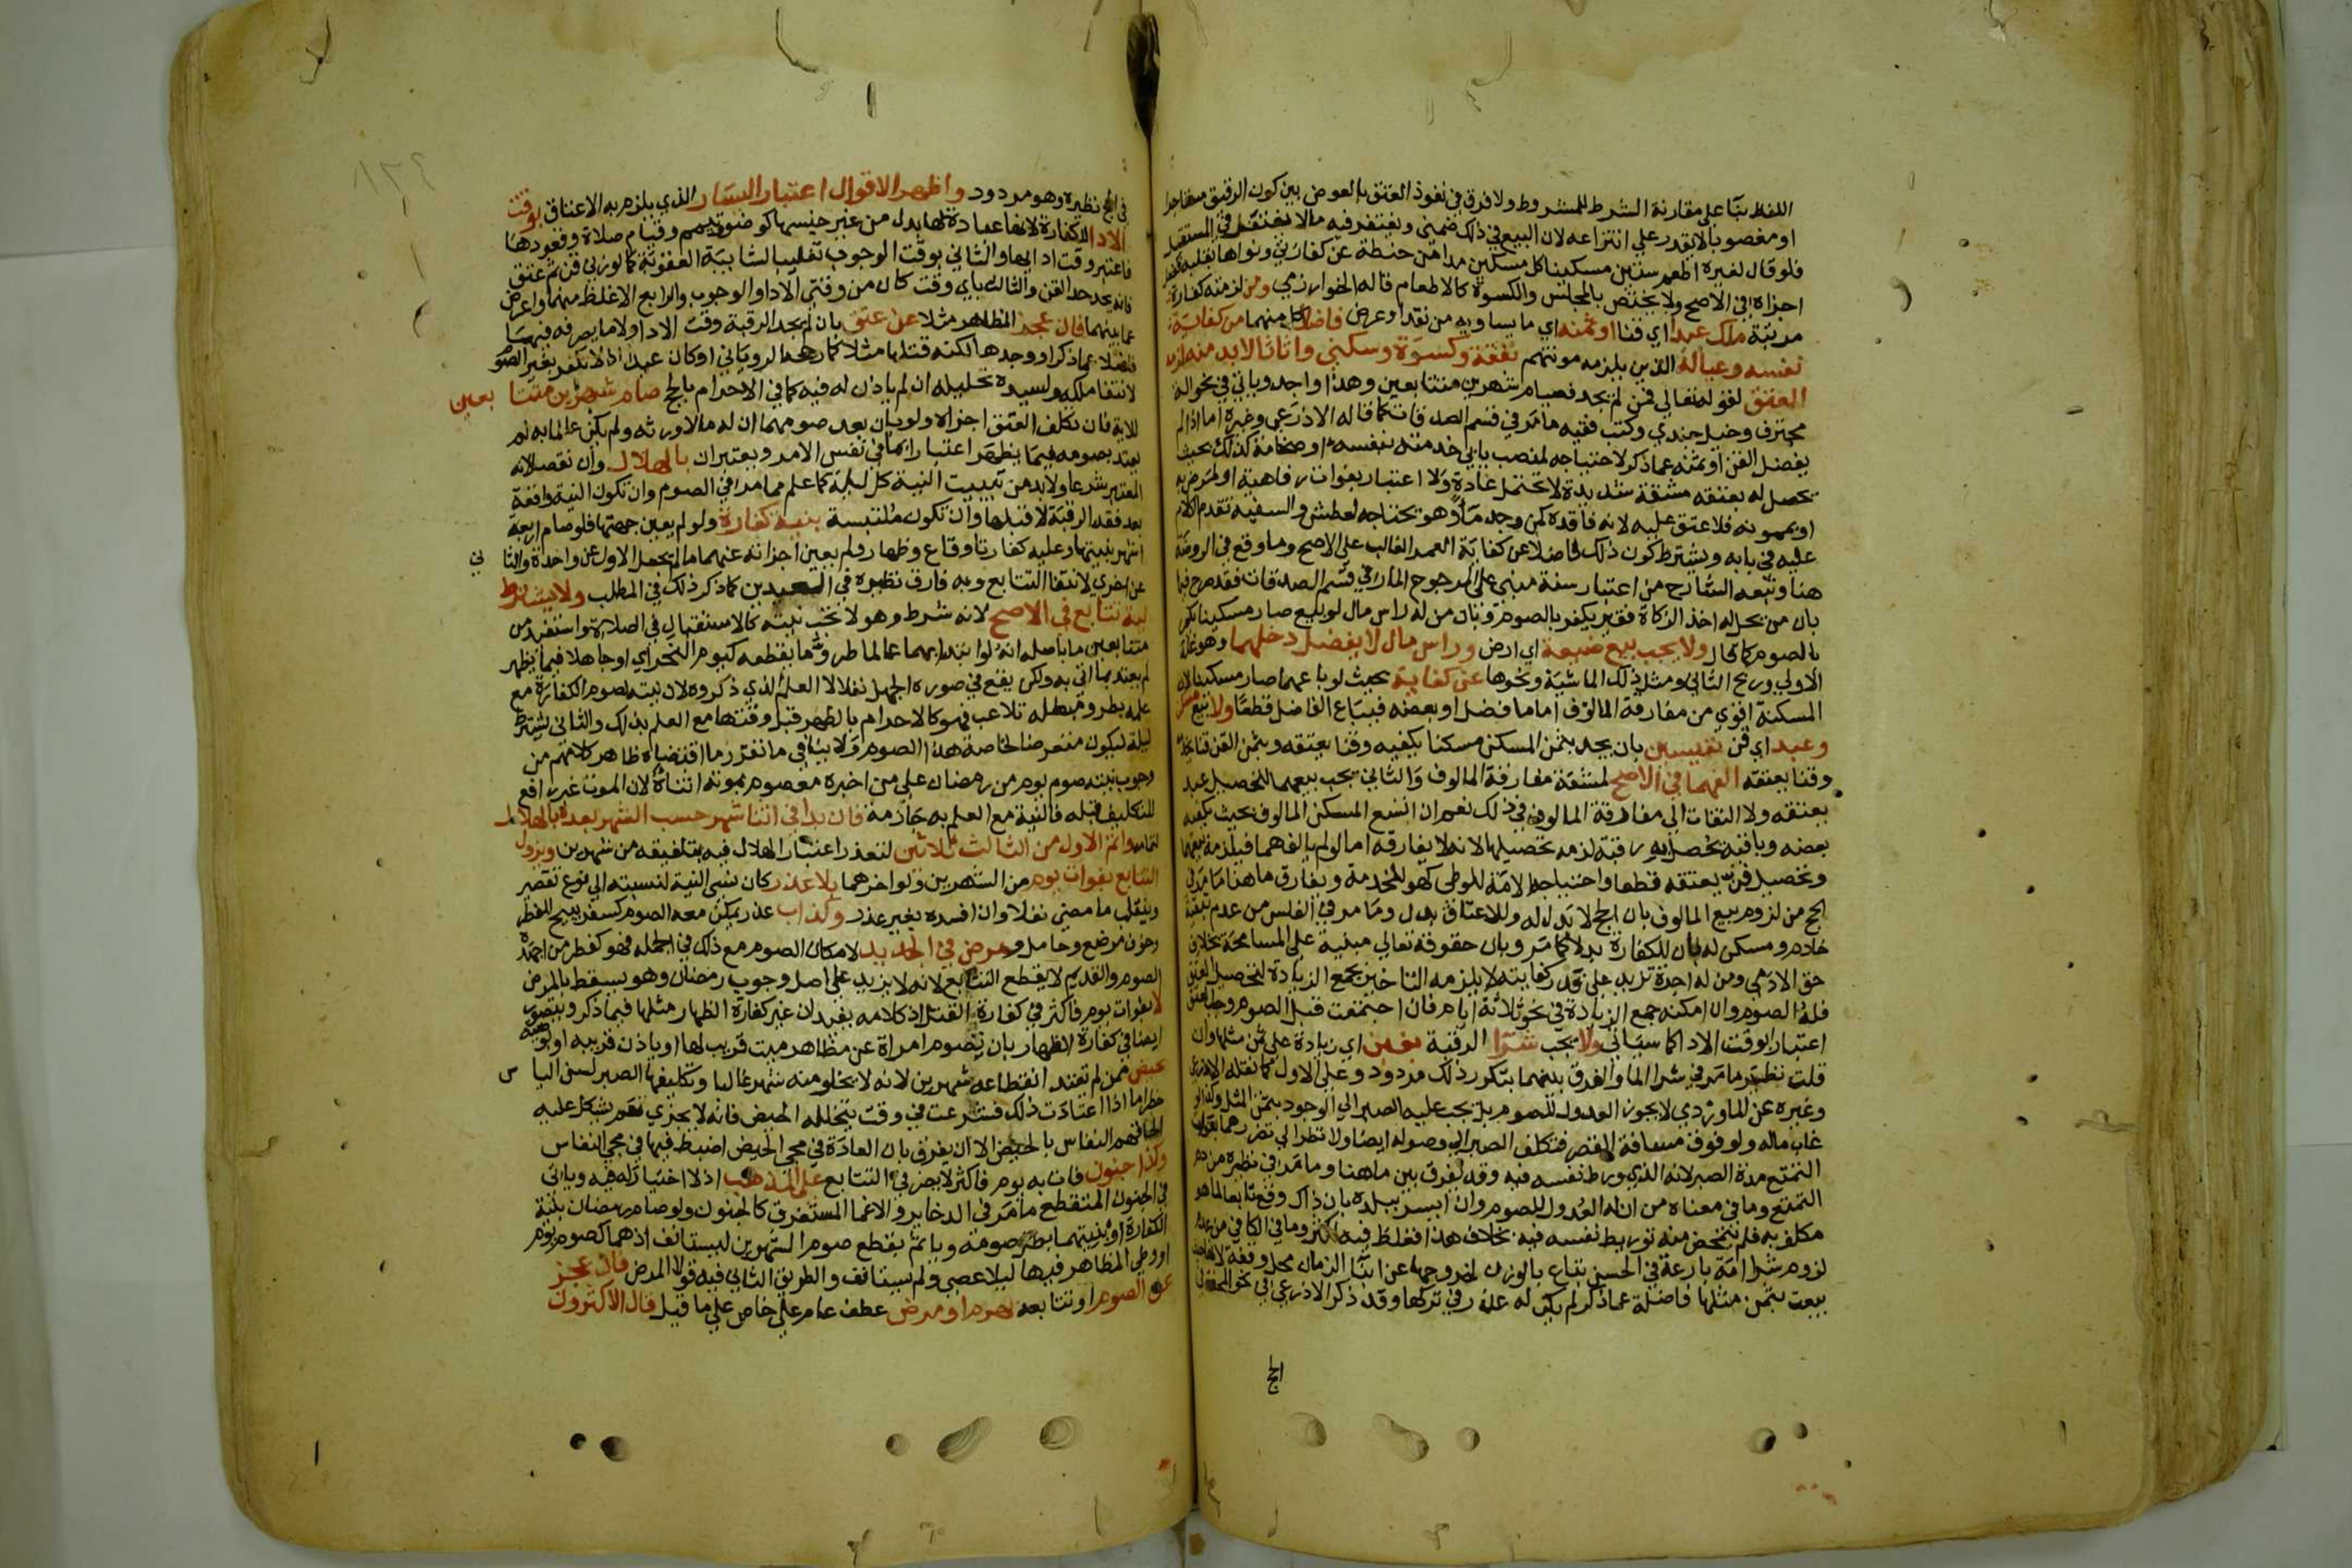 اللفظ بنا على مقارنة الشرط للمشروط ولا فرق في نفوذ العتق بالعوض بين كون الرقيق مستاجرا
او مغصوبا لا يقدر على انتزاعه لان البيع في ذلك ضمني ويغتفر فيه مالا يغتفر في المستقل
فلو قال لغيره اطعم ستين مسكينا كل مسكين مدا من حنطة عن كفارتي ونواها بقلبه ففعل
اجزاه في الاصح ولا يختص بالمجلس والكسوة كالاطعام قاله الخوارزمي ومن لزمته كفارة
مرتبة ملك عبدا اي قنا او ثمنه اي ما يساويه من نقد او عرض فاضلا كل منهما من كفاية
نفسه وعياله الذين يلزمه مونتهم نفقة وكسوة وسكنى واثاثا لا بد منه لزمه
العتق لقوله تعالى فمن لم يجد فصيام شهرين متتابعين وهذا واجد وياتي في نحو الة
محترف وخيل جندي وكتب فقيه ما مر في قسم الصدقات كما قاله الاذرعي وغيره اما اذا لم
يفضل القن او ثمنه عما ذكر لاحتياجه لمنصب يابى خدمته بنفسه او ضخامة كذلك بحيث
يحصل له بعتقه مشقة شديدة لا تحتمل عادة ولا اعتبار بفوات رفاهية او لمرض به
او بممونه فلا عتق عليه لانه فاقده كمن وجد ما وهو يحتاجه لعطش والسفيه تقدم الكلام
عليه في بابه ويشترط كون ذلك فاضلا عن كفاية العمر الغالب على الاصح وما وقع في الروضة
هنا وتبعه الشارح من اعتبار سنة مبني على المرجوح المار في قسم الصدقات فقد صرح فيها
بان من يحل له اخذ الزكاة فقير يكفر بالصوم وبان من له راس مال لو بيع صار مسكينا كفر
بالصوم كما قال ولا يجب بيع ضيعة اي ارض وراس مال لا يفضل دخلهما وهو غلة
الاولى وربح الثاني ومثل ذلك الماشية ونحوها عن كفاية بحيث لو باعهما صار مسكينا لان
المسكنة اقوى من مفارقة المالوف اما ما فضل او بعضه فيباع الفاضل قطعا ولا بيع مسكن
وعبد اي قن نفيسين بان يجد بثمن المسكن مسكنا يكفيه وقنا يعتقه وبثمن القن قنا يخدمه
وقنا يعتقه الفهما في الاصح لمشقة مفارقة المالوف والثاني يجب بيعهما لتحصيل عبد
يعتقه ولا التفات الى مفارقة المالوف في ذلك نعم ان اتسع المسكن المالوف بحيث يكفيه
بعضه وباقيه يحصل به رقبة لزمه تحصيلها لانه لا يفارقه اما لو لم يالفهما فيلزمه بيعهما
وتحصيل قن يعتقه قطعا واحتياجه الامة للوطي كهو للخدمة ويفارق ما هنا ما مر في
الحج من لزوم بيع المالوف بان الحج لا بدل له وللاعتاق بدل وما مر في الفلس من عدم تبقية
خادم ومسكن له بان للكفارة بدلا كما مر وبان حقوقه تعالى مبنية على المسامحة بخلاف
حق الادمي ومن له اجرة تزيد على قدر كفايته لا يلزمه التاخير بجمع الزيادة لتحصيل العتق
فله الصوم وان امكنه جمع الزيادة في نحو ثلاثة ايام فان اجتمعت قبل الصوم وجب العتق
اعتبارا لوقت الاداء كما سياتي ولا يجب شرا الرقبة بغبن اي زيادة على ثمن مثلها وان
قلت نظير ما مر في شرا الما والفرق بينهما بتكرر ذلك مردود وعلى الاول كما نقله الاذرعي
وغيره عن الماوردي لا يجوز العدول للصوم بل يجب عليه الصبر الى الوجود بثمن المثل وكذا لو
غاب ماله ولو فوق مسافة القصر فيكلف الصبر الى وصوله ايضا ولا نظر الى تضررهما بفوات
التمتع مدة الصبر لانه الذي ورط نفسه فيه وقد يفرق بين ما هنا وما مر في نظيره من دم
التمتع وما في معناه من ان له العدول للصوم وان ايسر ببلده بان ذاك وقع تابعا لما هو
مكلف به فلم يتمحض منه توريط نفسه فيه بخلاف هذا فغلظ فيه اكثر وما في الكافي من عدم
لزوم شرا امة بارعة في الحسن تباع بالوزن لخروجها عن ابنا الزمان محل وقفة لانها حيث
بيعت بثمن مثلها فاضلة عما ذكر لم يكن له عذر في تركها وقد ذكر الاذرعي في نحو المحفة في
الحج
في الحج نظيره وهو مردود واظهر الاقوال اعتبار اليسار الذي يلزم به الاعتاق بوقت
الادا للكفارة لانها عبادة لها بدل من غير جنسها كوضوء وتيمم وقيام صلاة وقعودها
فاعتبر وقت ادايها والثاني بوقت الوجوب تغليبا لشايبة العقوبة كما لو زنى قن ثم عتق
فانه يحد حد القن والثالث باي وقت كان من وقتي الادا والوجوب والرابع الاغلظ منهما واعرض
عما بينهما فان عجز المظاهر مثلا عن عتق بان لم يجد الرقبة وقت الادا ولا ما يصرفه فيها
فاضلا عما ذكر او وجدها لكنه قتلها مثلا كما رجحه الروياني او كان عبدا اذ لا يكفر بغير الصوم
لانتفا ملكه ولسيده تحليله ان لم ياذن له فيه كما في الاحرام بالحج صام شهرين متتابعين
للاية فان تكلف العتق اجزاه ولو بان بعد صومهما ان له مالا ورثه ولم يكن عالما به لم
يعتد بصومه فيما يظهر اعتبارا بما في نفس الامر ويعتبران بالهلال وان نقصا لانه
المعتبر شرعا ولا بد من تبييت النية كل ليلة كما علم مما مر في الصوم وان تكون النية واقعة
بعد فقد الرقبة لا قبلها وان تكون ملتبسة بنية كفارة ولو لم يعين جهتها فلو صام اربعة
اشهر بنيتها وعليه كفارتا وقاع وظهار ولم يعين اجزاته عنهما ما لم يجعل الاول عن واحدة والثاني
عن اخرى لانتفا التتابع وبه فارق نظيره في العبدين كما ذكر ذلك في المطلب ولا يشترط
نية تتابع في الاصح لانه شرط وهو لا تجب نيته كالاستقبال في الصلاة واستفيد من
متتابعين ما باصله انه لو ابتداهما عالما طرو ما يقطعه كيوم النحر اي او جاهلا فيما يظهر
لم يعتد بما اتى به ولكن يقع في صورة الجهل نفلا لا العلم الذي ذكروه لان نيته لصوم الكفارة مع
علمه بطرو مبطله تلاعب فهو كالاحرام بالظهر قبل وقتها مع العلم بذلك والثاني يشترط
ليلة ليكون متعرضا لخاصة هذا الصوم ولا ينافي ما تقرر ما اقتضاه ظاهر كلامهم من
وجوب نيته صوم يوم من رمضان على من اخبره معصوم بموته اثناه لان الموت غير رافع
للتكليف قبله فالنية مع العلم به جازمة فان بدا في اثنا شهر حسب الشهر بعده بالهلال
لتمامه واتم الاول من الثالث ثلاثين لتعذر اعتبار الهلال فيه بتلفيقه من شهرين ويزول
التتابع بفوات يوم من الشهرين ولو اخرهما بلا عذر كان نسي النية لنسبته الى نوع تقصير
وينقلب ما مضى نفلا وان افسده بغير عذر وكذا ب عذر يمكن معه الصوم كسفر يبيح الفطر
وخوف مرضع وحامل ومرض في الجديد لامكان الصوم مع ذلك في الجملة فهو كفطر من اجهده
الصوم والقديم لا يقطع التتابع لانه لا يزيد على اصل وجوب رمضان وهو يسقط بالمرض
لا بفوات يوم فاكثر في كفارة القتل اذ كلامه يفيد ان غير كفارة الظهار مثلها فيما ذكر ويتصور
ايضا في كفارة الظهار بان تصوم امراة عن مظاهر ميت قريب لها او باذن قريبه او بوصيته
بحيض ممن لم تعتد انقطاعه شهرين لانه لا يخلو منه شهر غالبا وتكليفها الصبر لسن الياس
خطر اما اذا اعتادت ذلك فشرعت في وقت يتخلله الحيض فانه لا يجزي نعم يشكل عليه
الحاقهم النفاس بالحيض الا ان يفرق بان العادة في مجي الحيض اضبط فيها في مجي النفاس
وكذا جنون فات به يوم فاكثر لا يضر في التتابع على المذهب اذ لا اختيار له فيه وياتي
في الجنون المتقطع ما مر في الذخاير والاغما المستغرق كالجنون ولو صام رمضان بنية
الكفارة او بنيتهما بطل صومه وياثم بقطع صوم الشهرين ليستانف اذ هما كصوم يوم
او وطي المظاهر فيها ليلا عصى ولم يستانف والطريق الثاني فيه قولا المرض فان عجز
عن الصوم او تتابعه لهرم او مرض عطف عام على خاص على ما قيل قال الاكثرون